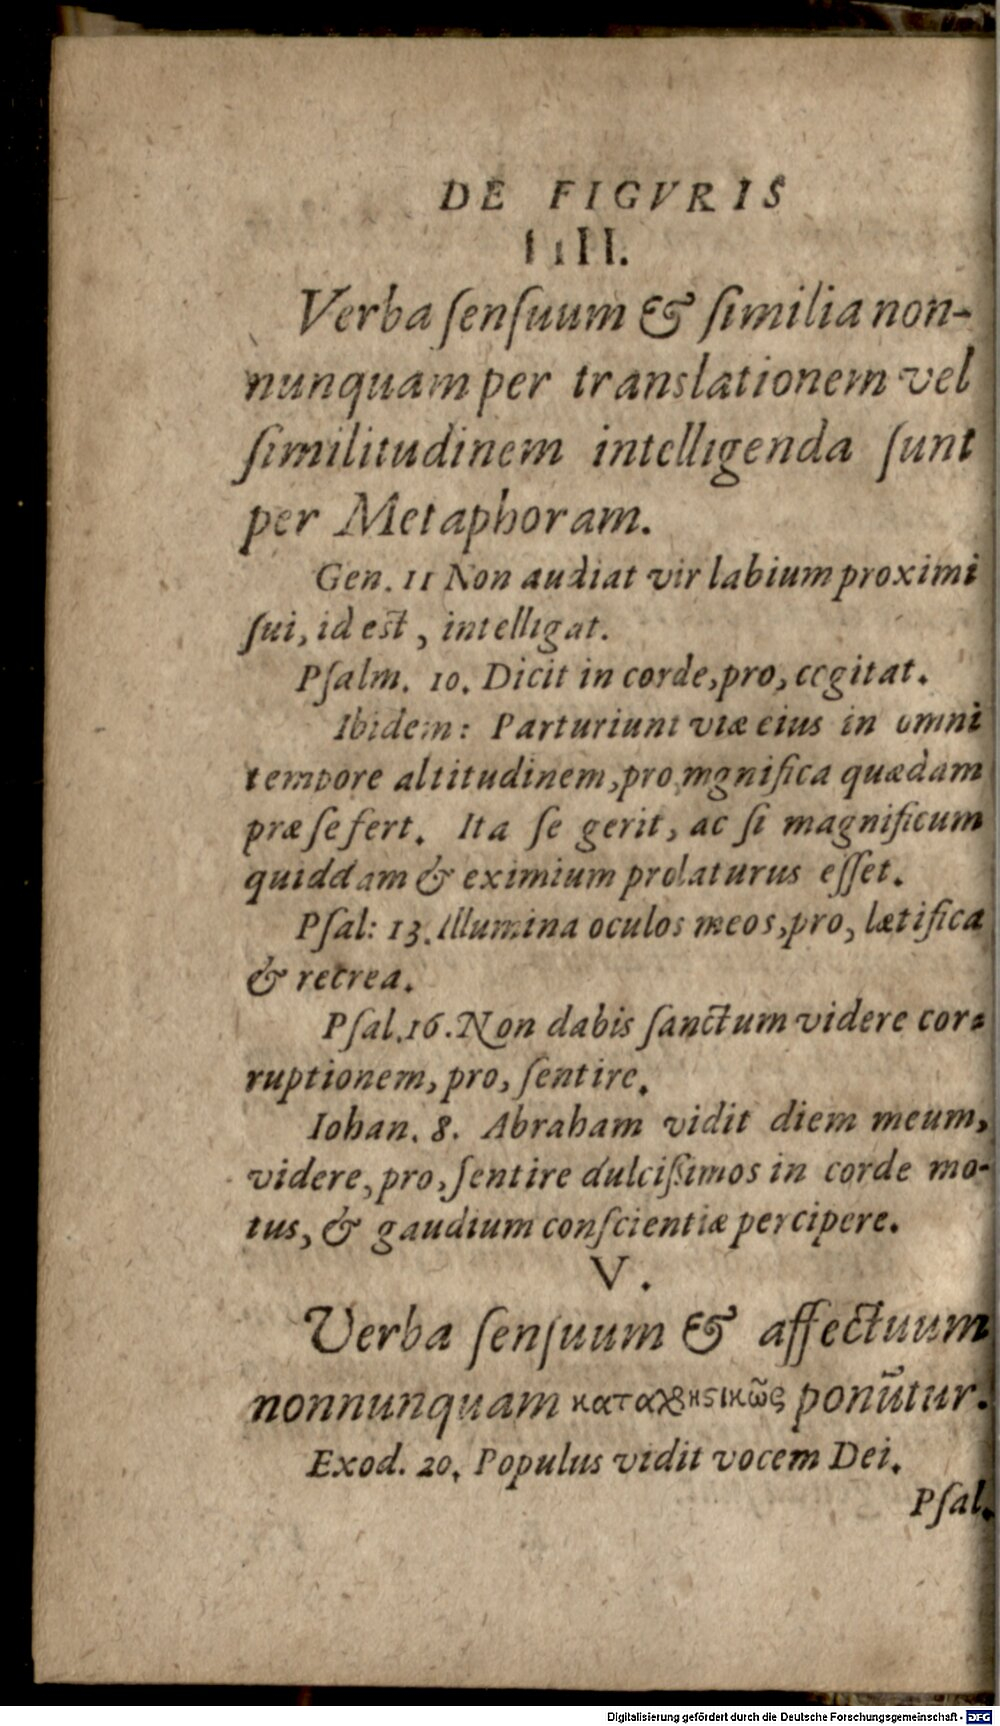 DE FIGVRIS
IIII.
Verba ſenſuum & ſimilia non-
nunquam per translationem vel
ſimilitudinem intelligenda ſunt
per Metaphoram.
Gen. 11 Non audiat vir labium proximi
ſui, id est, intelligat.
Pſalm. 10. Dicit in corde, pro, cogitat.
Ibidem: Parturiunt viæ eius in omni
tempore altitudinem, pro mgnifica quædam
præ ſe fert. Ita ſe gerit, ac ſi magnificum
quiddam & eximium prolaturus eſſet.
Pſal: 13. Illumina oculos meos, pro, lætifica
& recrea.
Pſal. 16. Non dabis ſanctum videre cor-
ruptionem, pro, ſentire.
Iohan. 8. Abraham vidit diem meum,
videre, pro, ſentire dulciſſimos in corde mo-
tus, & gaudium conſcientiæ percipere.
V.
Verba ſenſuum & affectuum
nonnunquam καταχρηςικῶς ponūtur.
Exod. 20. Populus vidit vocem Dei.
Pſal.
Digitalisierung gefördert durch die Deutsche Forschungsgemeinschaft - DFG